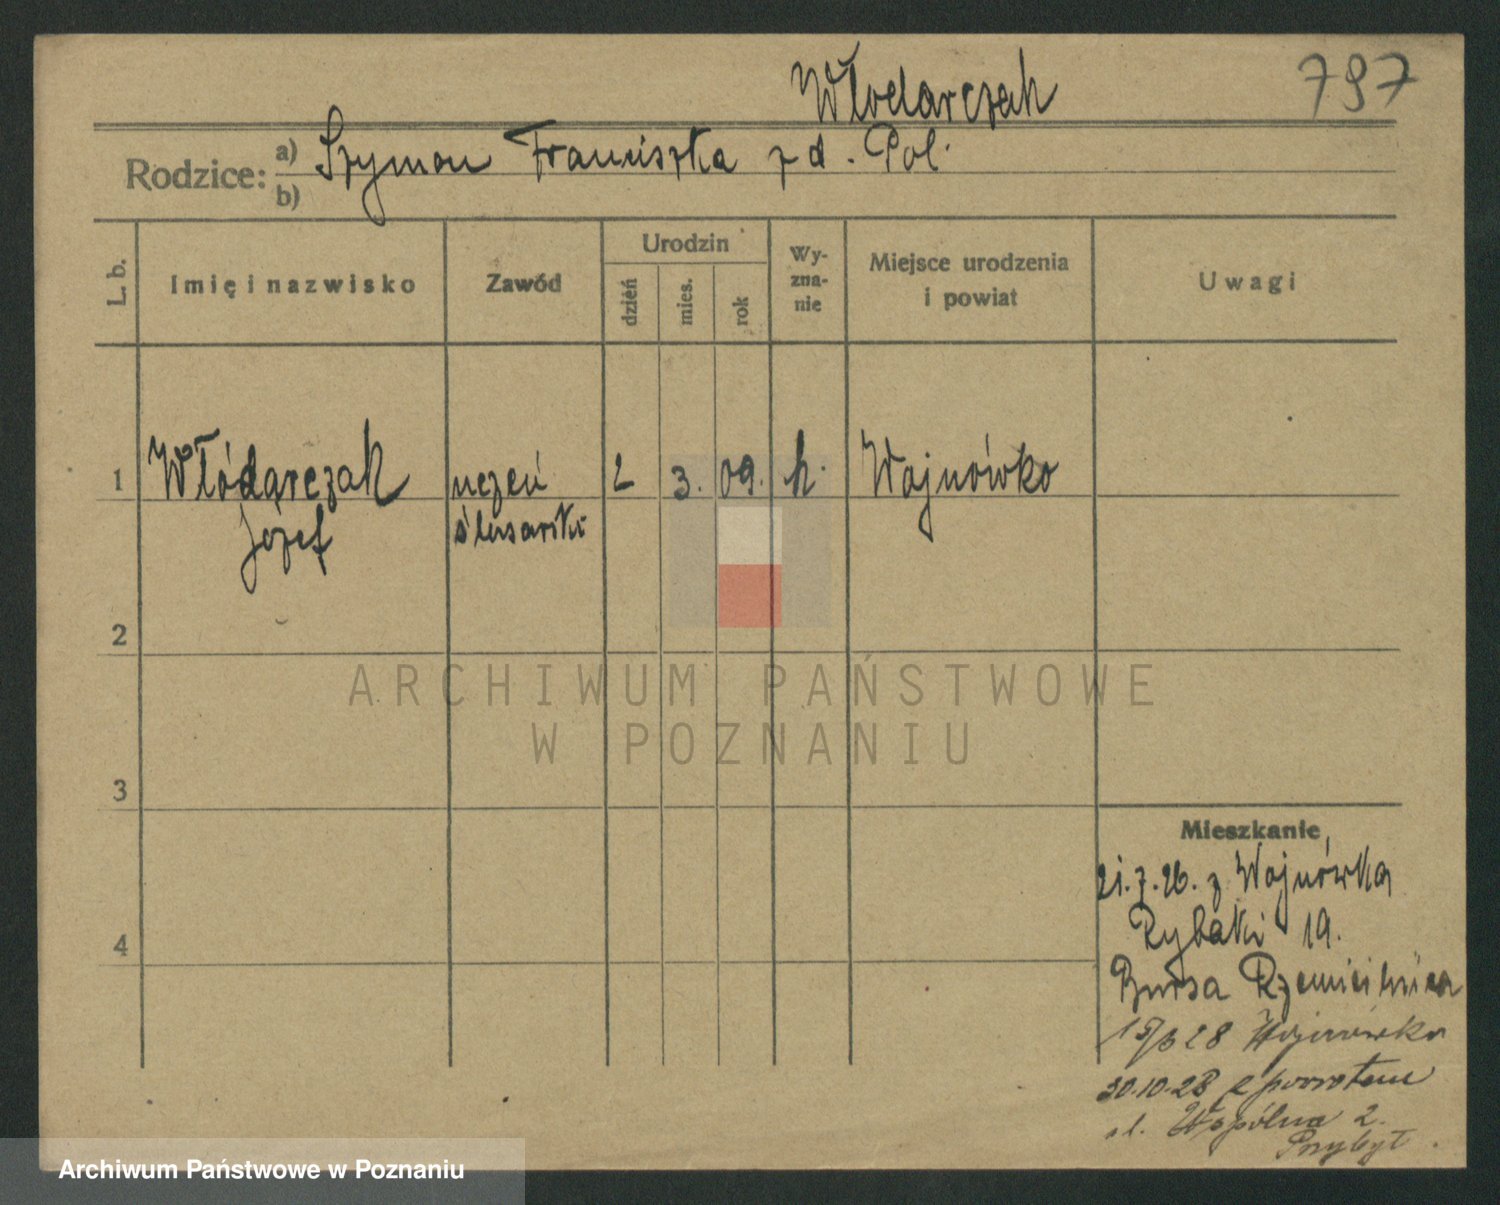 Włodarczak
797
Rodzice: a) Szymon Franciszka z d. Pol.
b)
L. b.
Imię i nazwisko
Zawód
Urodzin
dzień
mies.
rok
Wy-
zna-
nie
Miejsce urodzenia
i powiat
Uwagi
1 Włódarczak uczeń 2 3. 09. k. Wojnówko
Józef ślusarski
2
ARCHIWUM PAŃSTWOWE
W POZNANIU
3
Mieszkanie
21.7.26. z Wojnówka
4 Rybaki 19.
Bursa Rzemieślnicza
28 Wojnówko
30.10.28 z powrotem
ul. Wspólna 2.
Przybył
Archiwum Państwowe w Poznaniu